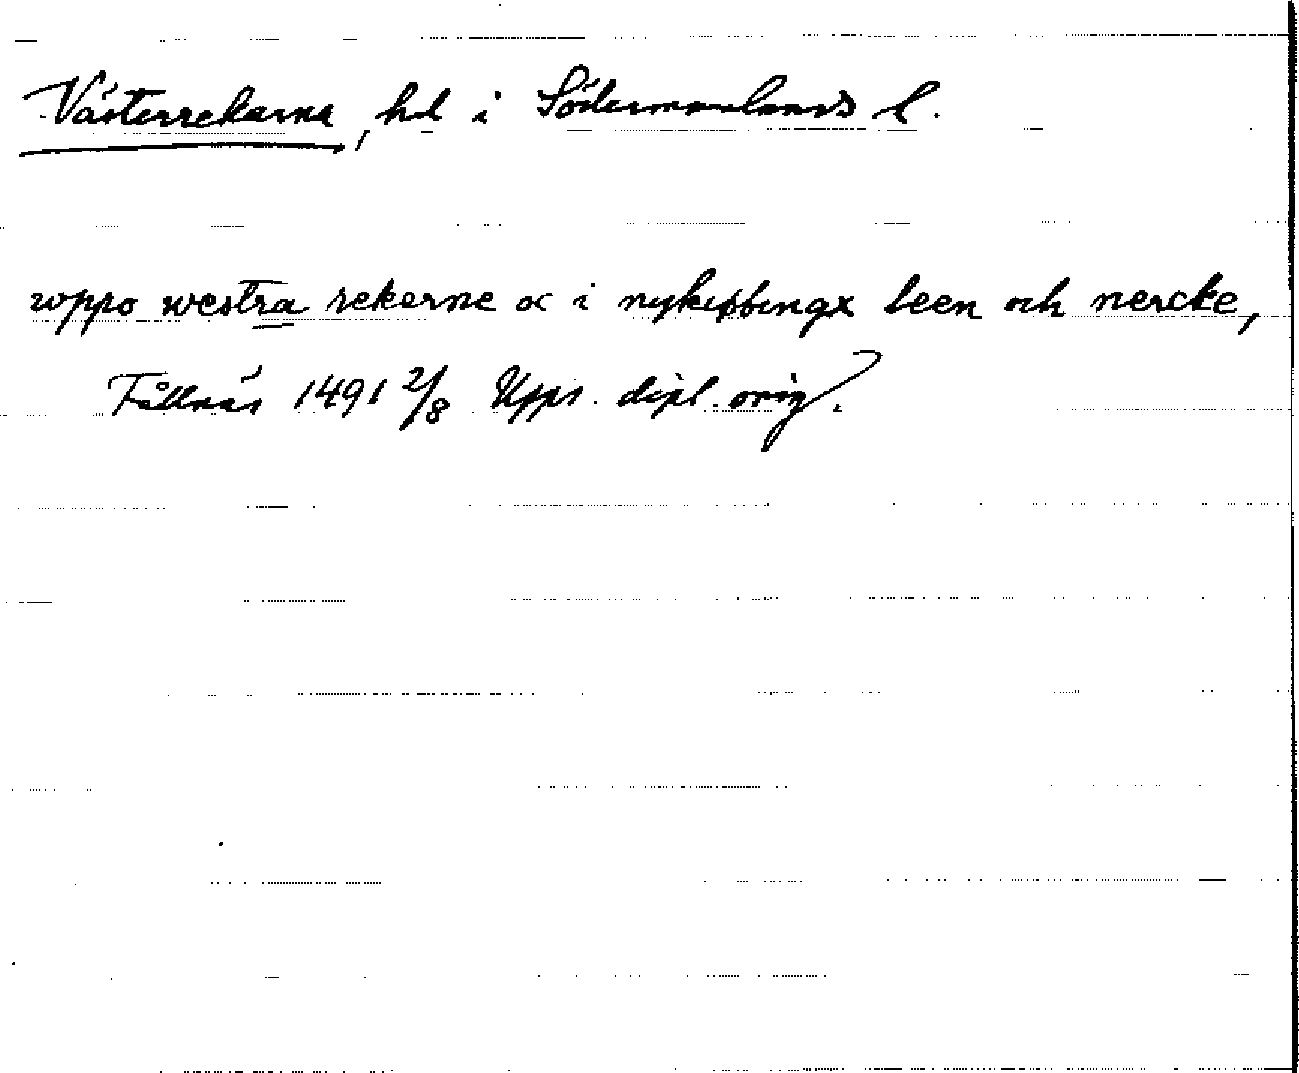 Västerrekarna, hd i Södermanlands l.
woppo westra rekerne oc i nykøbbingx leen och nercke,
Fållnäs 1491 2/8 Upps. dipl. orig.